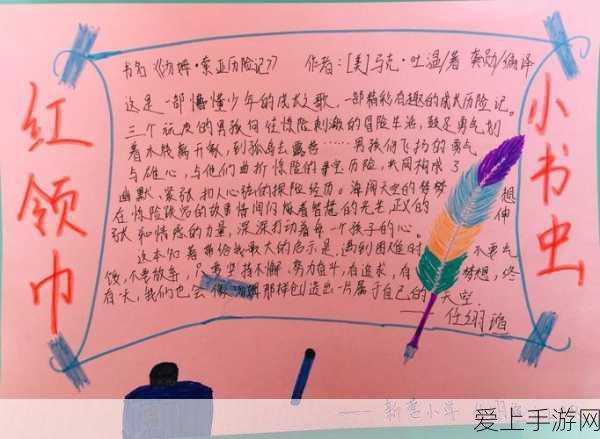 红领巾
小书虫
书名《汤姆·索亚历险记》 作者:[美]马克·吐温/著 龚勋/编译
这是一部懵懂少年的成长之歌,一部精彩有趣的成长历险记。
三个顽皮的男孩向往惊险刺激的冒险生活,鼓足勇气划
着木筏离开家,到孤岛去露营……男孩们飞扬的勇气
与雄心,与他们曲折惊险的寻宝历险,共同构成了
幽默、紧张扣人心弦的探险经历。海阔天空的梦 想
在惊险跌宕的故事情间闪烁着智慧的光芒,正义的 伸
张和情感的力量,深深打动着每一个孩子的心。
这本书带给我最大的启示是:遇到困难时 不要气
馁,不要放弃,只要坚持不懈,努力奋斗,有追求,有 梦想,终
有一天,我们也会像汤姆那样创造出一片属于自己的 天空.
——任翊
——新 小学
爱上手游网